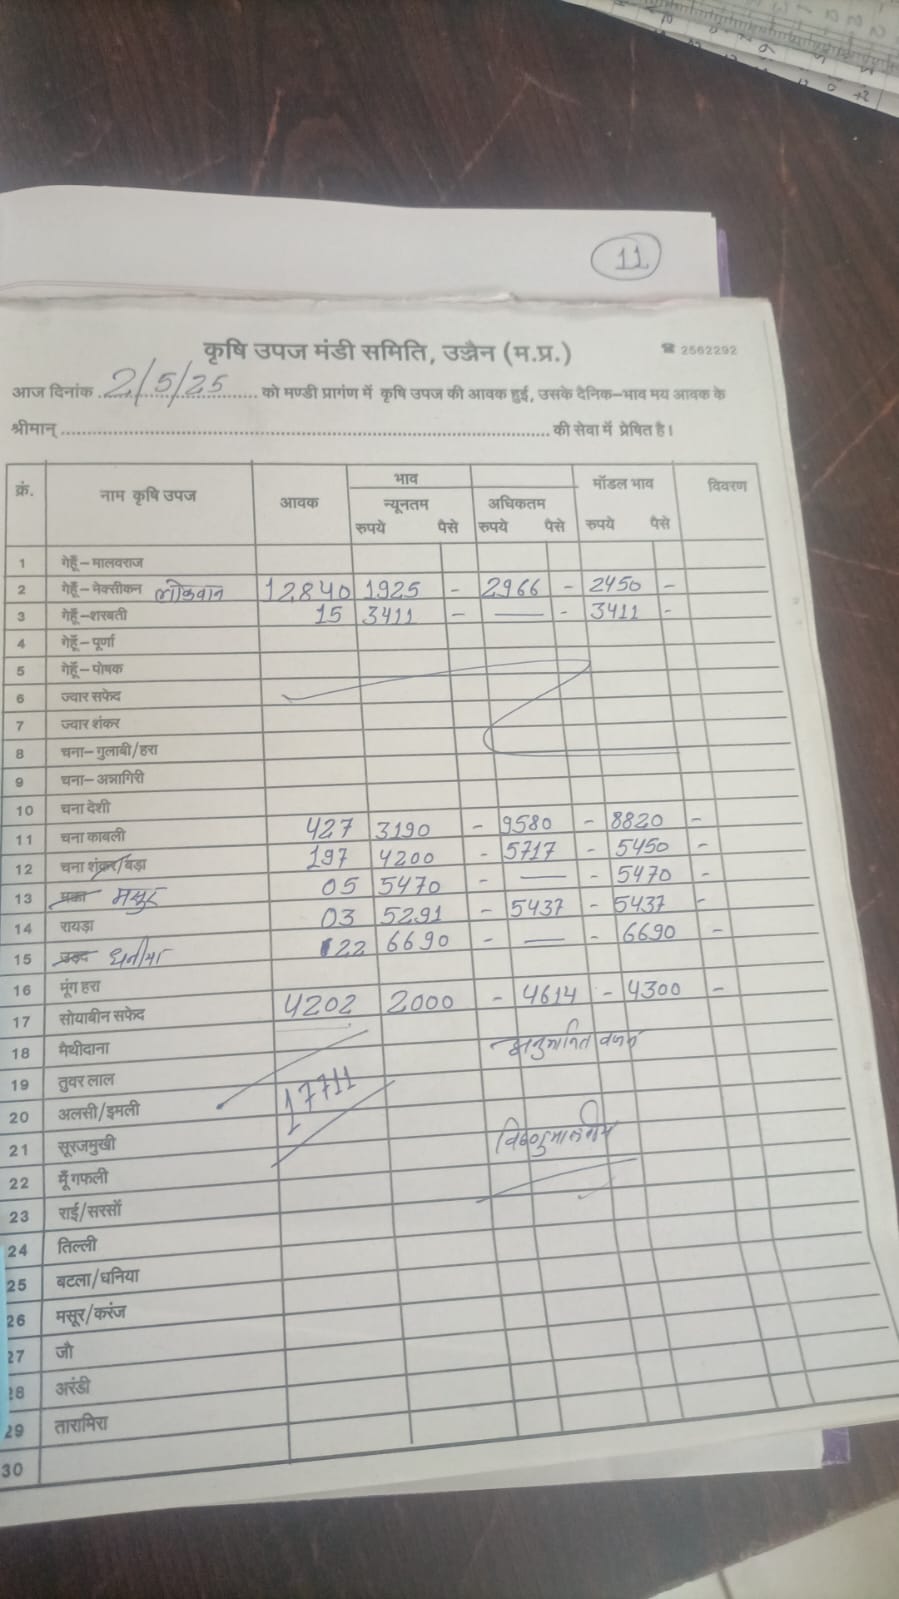 11
कृषि उपज मंडी समिति, उज्जैन (म.प्र.) ☎ 2562292
आज दिनांक 2/5/25 को मण्डी प्रागंण में कृषि उपज की आवक हुई, उसके दैनिक-भाव मय आवक के
श्रीमान् की सेवा में प्रेषित है।
क्रं. नाम कृषि उपज आवक भाव मॉडल भाव विवरण
न्यूनतम अधिकतम
रुपये पैसे रुपये पैसे रुपये पैसे
1 गेहूँ-मालवराज
2 गेहूँ-मेक्सीकन लोकवान 12840 1925 - 2966 - 2450 -
3 गेहूँ-शरबती 15 3411 - — - 3411 -
4 गेहूँ-पूर्णा
5 गेहूँ-पोषक
6 ज्यार सफेद
7 ज्यार शंकर
8 चना-गुलाबी/हरा
9 चना-अन्नागिरी
10 चना देशी
11 चना काबली 427 3190 - 9580 - 8820 -
12 चना शंकर/बड़ा 197 4200 - 5717 - 5450 -
13 मक्का मसूर 05 5470 - — - 5470 -
14 रायड़ा 03 5291 - 5437 - 5437 -
15 उड़द धनीया 22 6690 - — - 6690 -
16 मूंग हरा
17 सोयाबीन सफेद 4202 2000 - 4614 - 4300 -
18 मैथीदाना अनुमानित वजन
19 तुवर लाल
20 अलसी/इमली 17711
21 सूरजमुखी
22 मूँगफली
23 राई/सरसों
24 तिल्ली
25 बटला/धनिया
26 मसूर/करंज
27 जौ
28 अरंडी
29 तारामिरा
30